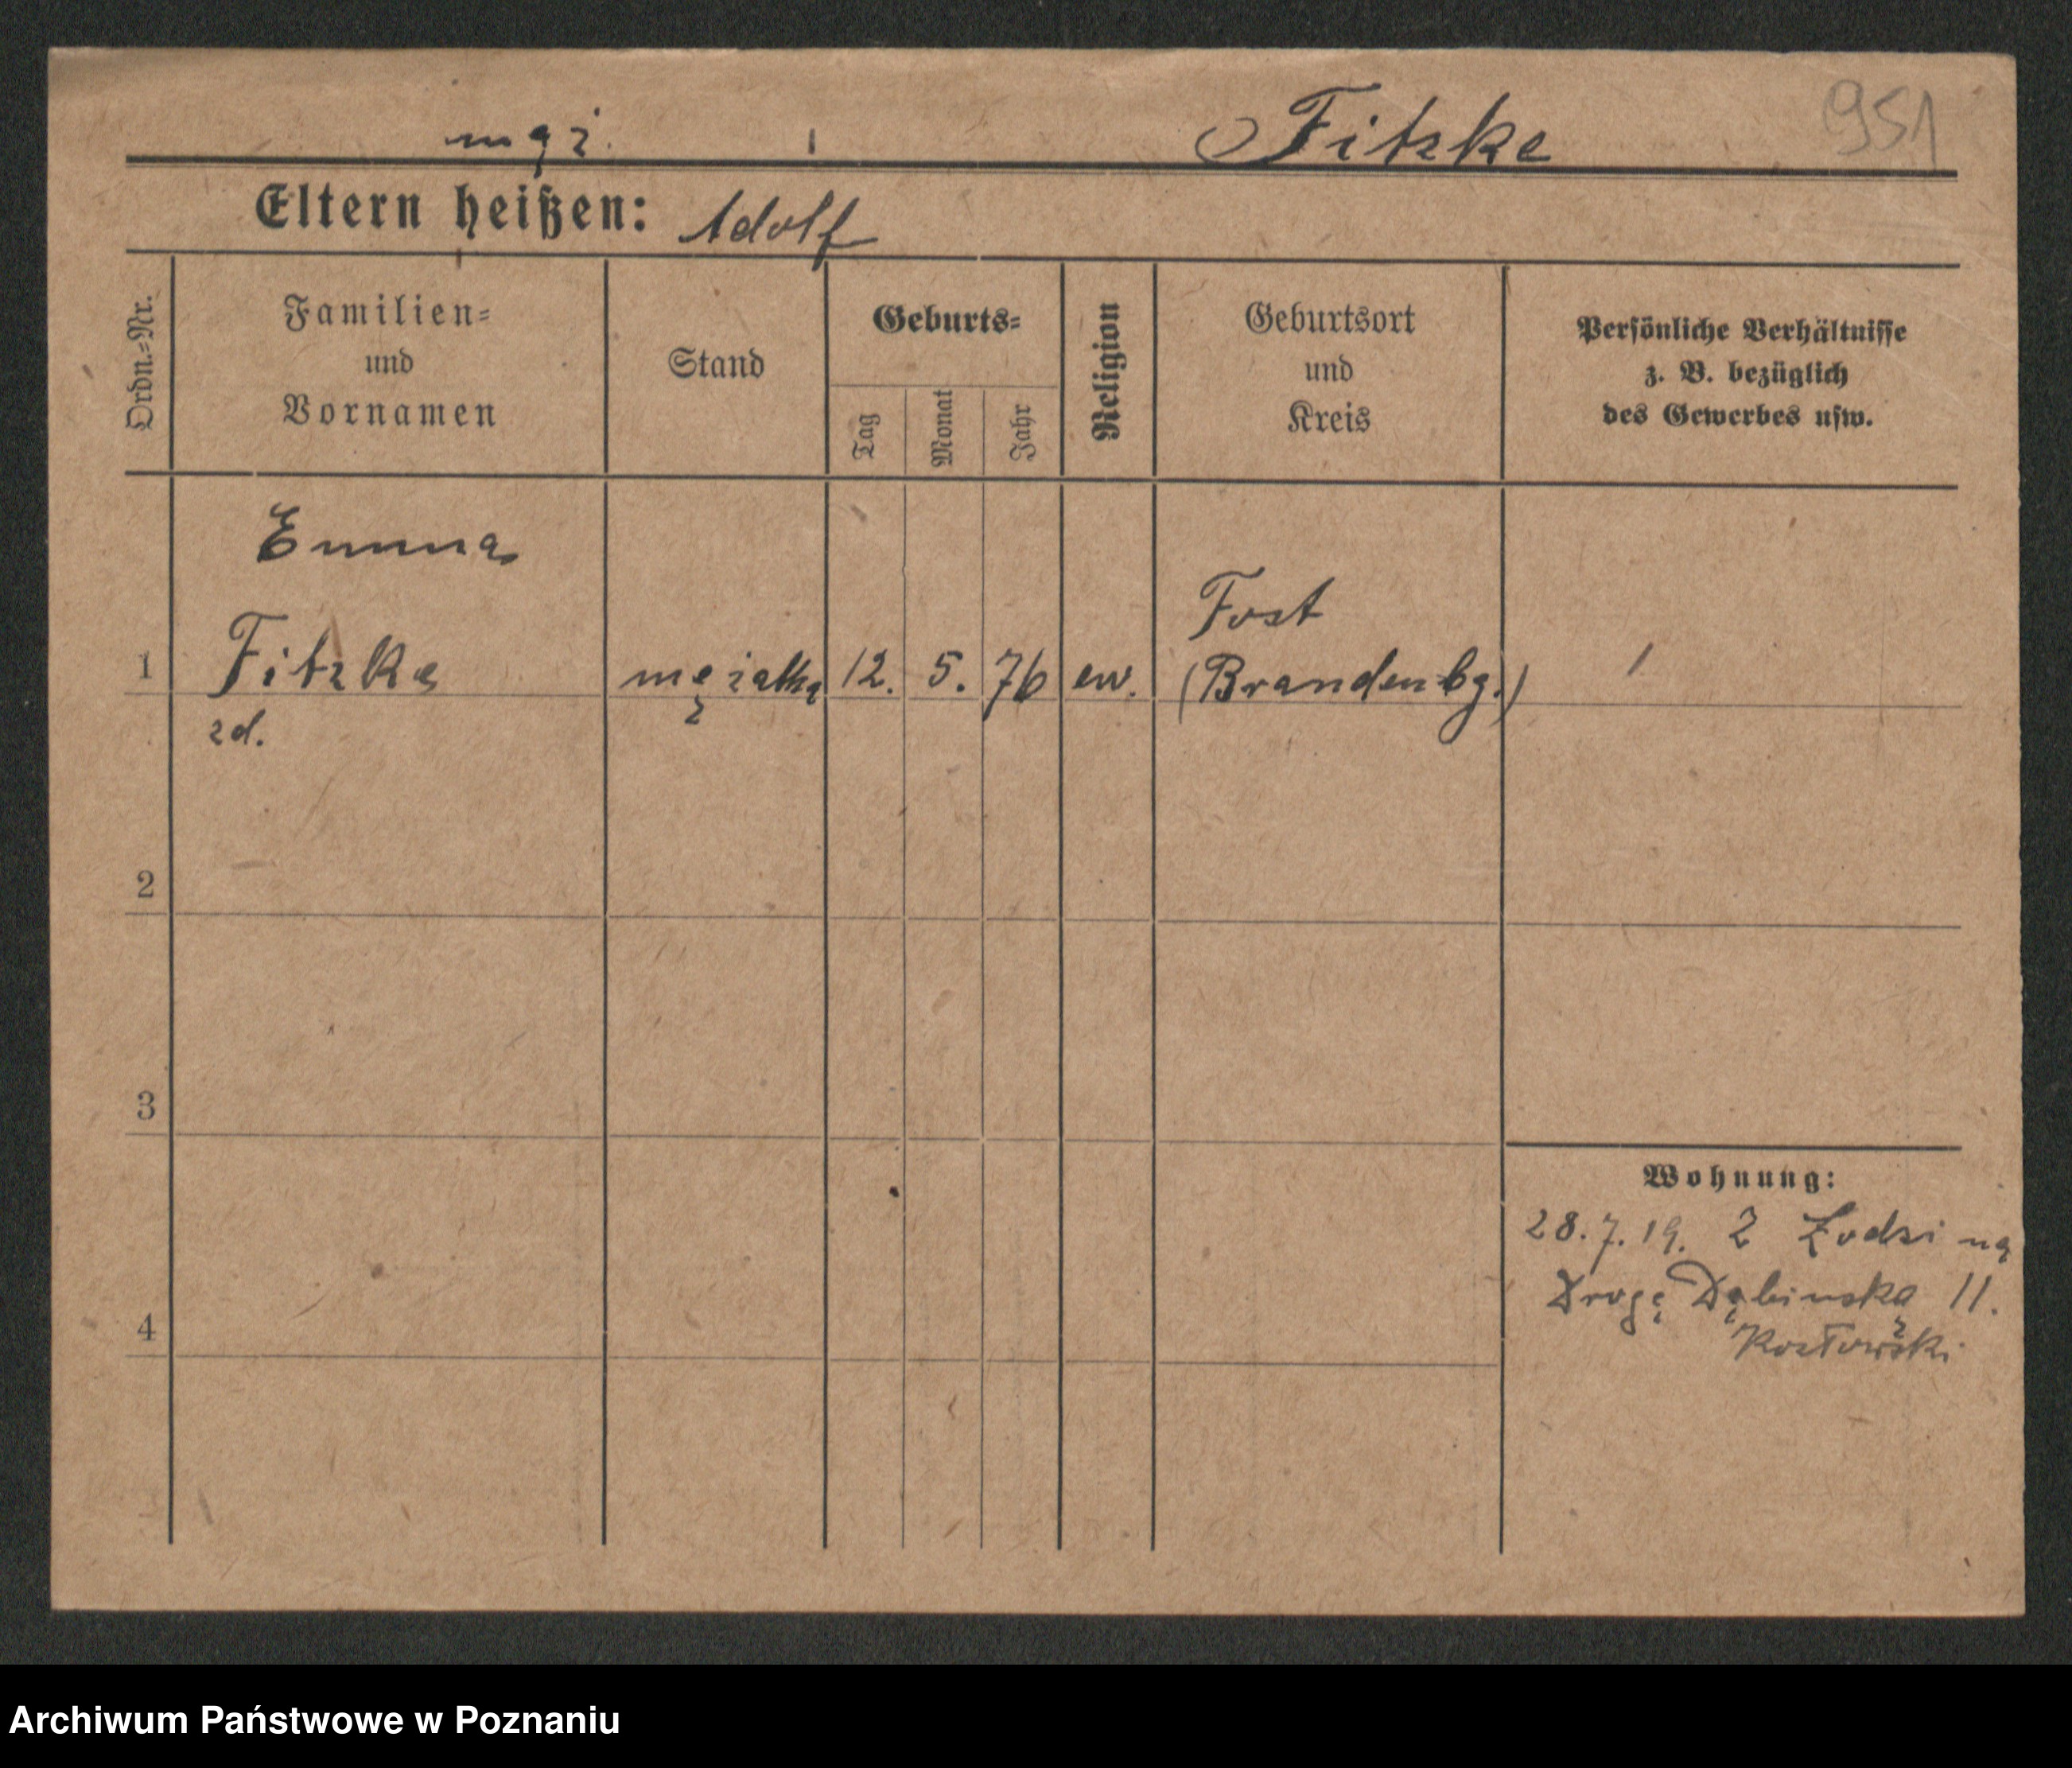 mąż. Fitzke 951
Eltern heißen: Adolf
Ordn.-Nr.
Familien-
und
Vornamen
Stand
Geburts-
Tag
Monat
Jahr
Religion
Geburtsort
und
Kreis
Persönliche Verhältnisse
z. B. bezüglich
des Gewerbes usw.
Emma
1 Fitzke mężatka 12. 5. 76 ew. Fost
(Brandenbg.)
zd.
2
3
4
Wohnung:
28.7.19. Z Łodzi na
Drogę Dębinska 11.
Kozłowski
Archiwum Państwowe w Poznaniu